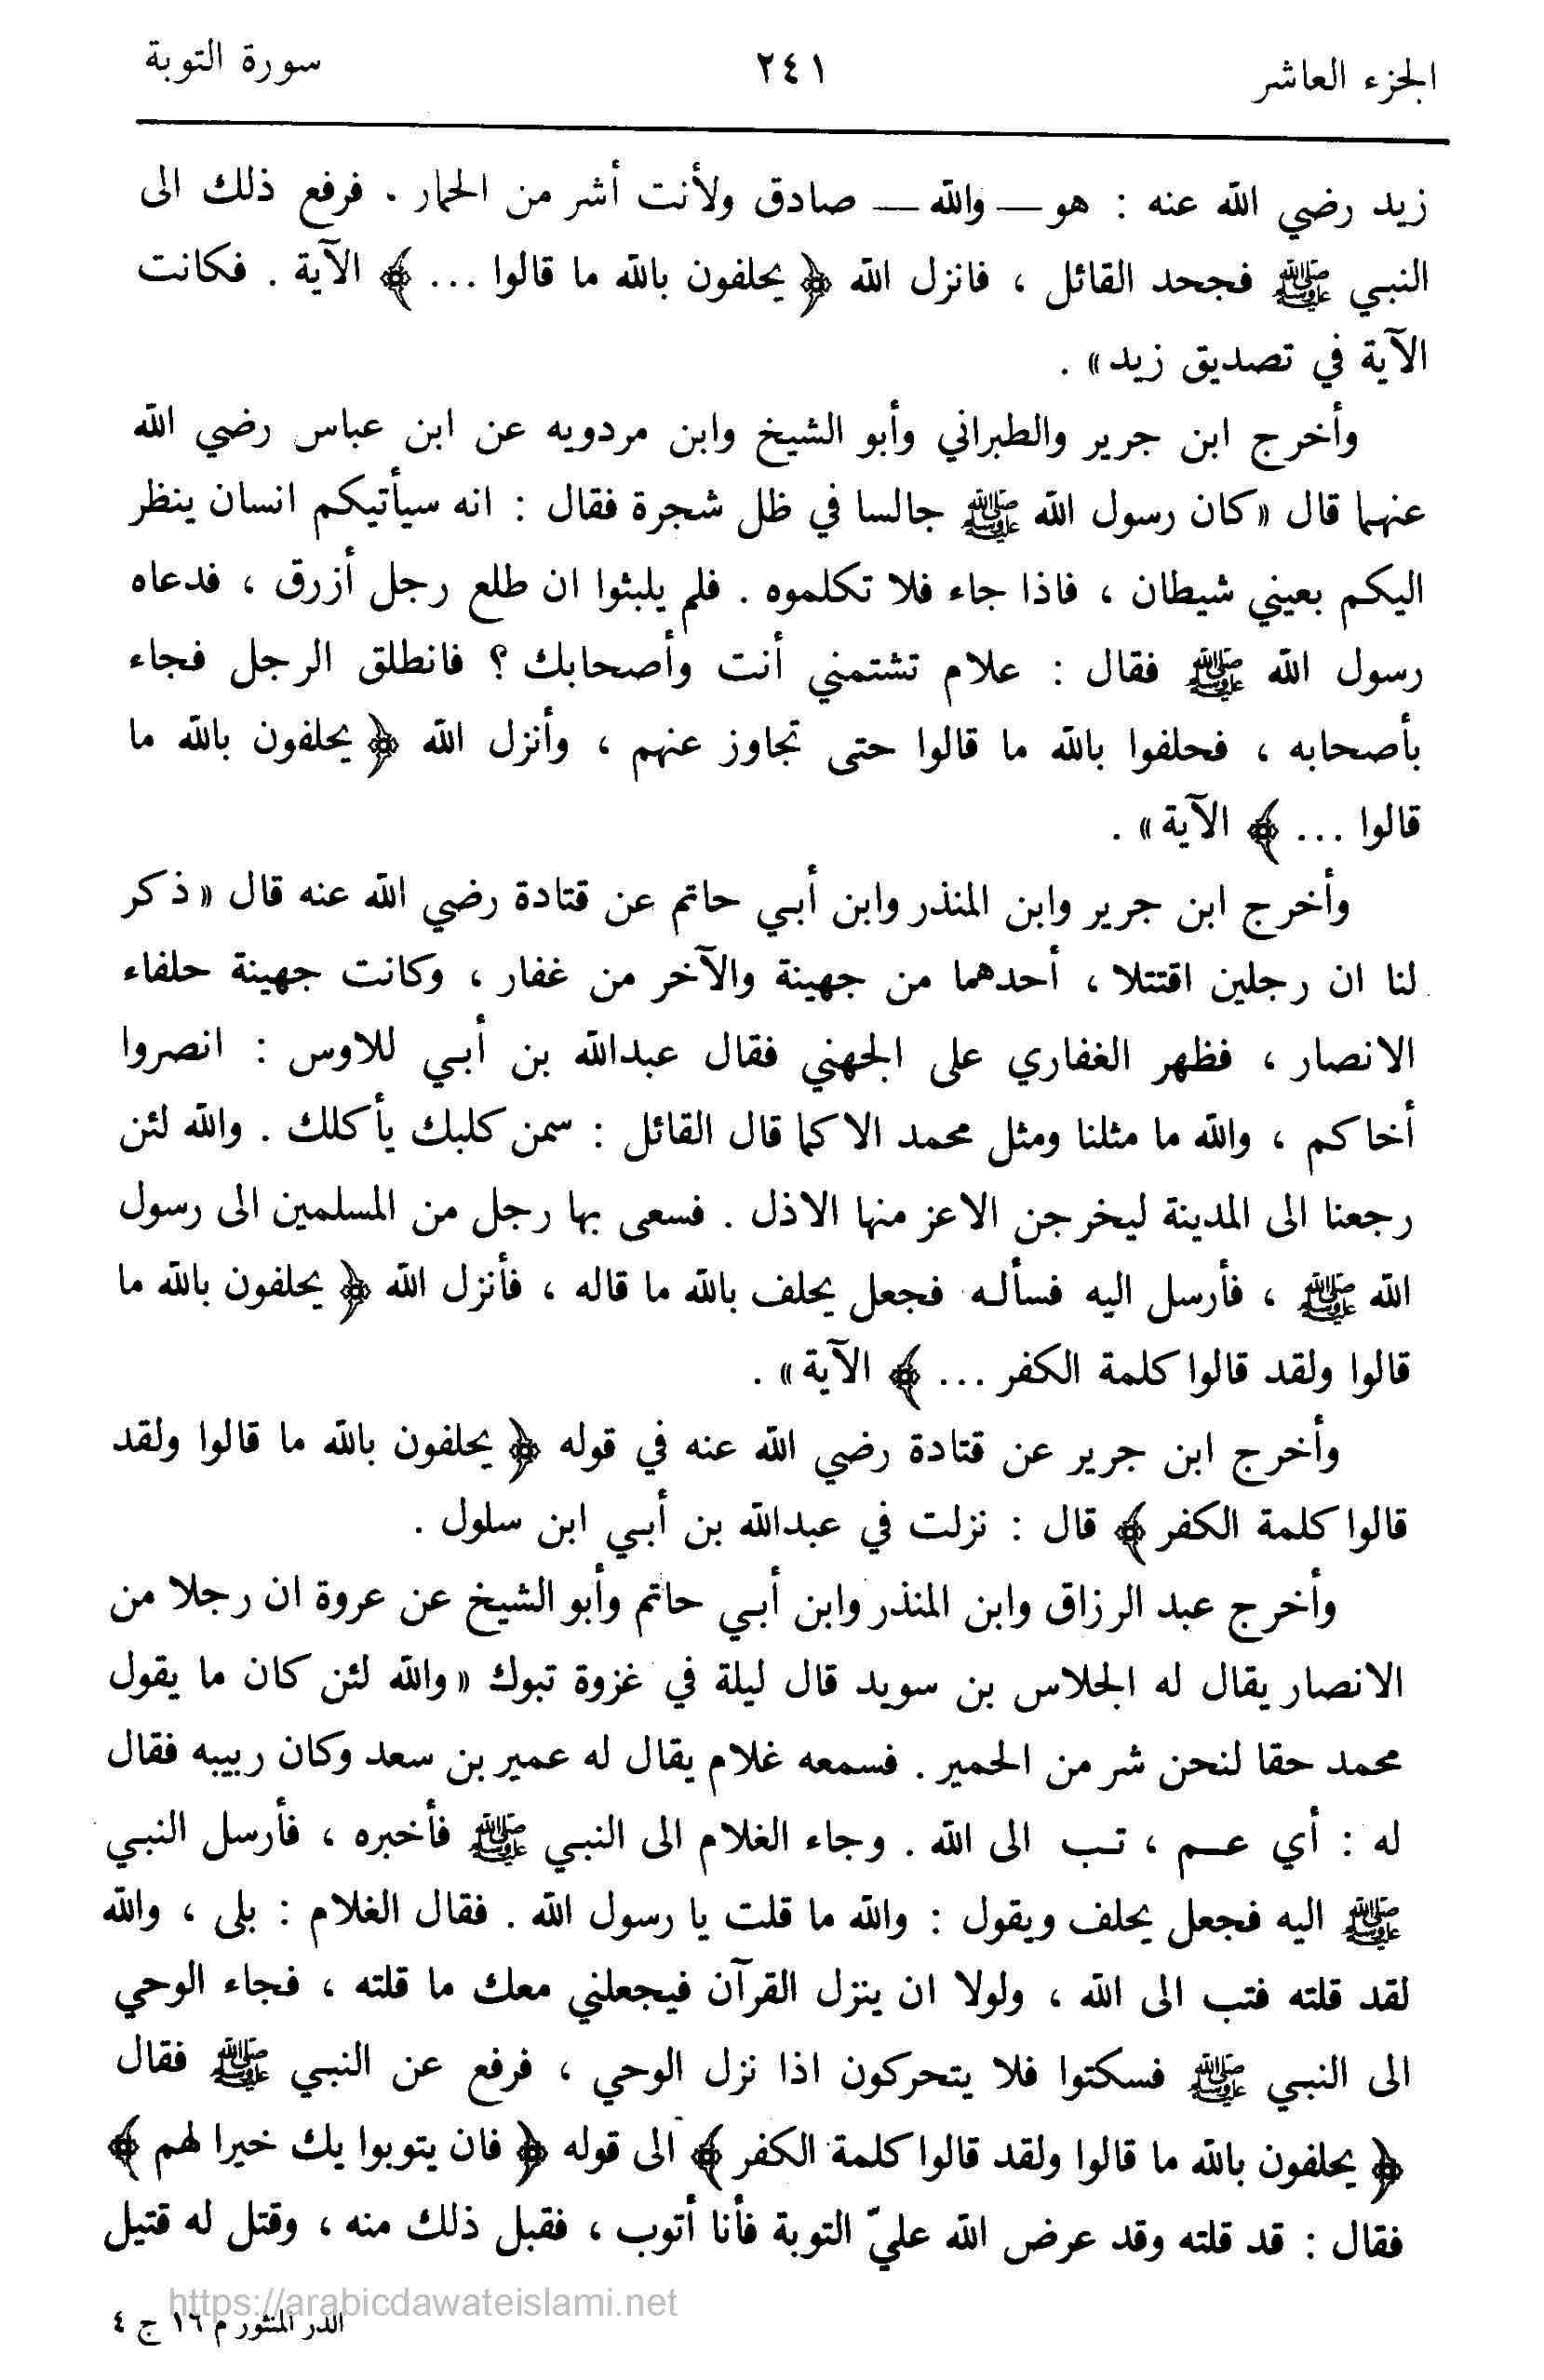 الجزء العاشر ٢٤١ سورة التوبة
زيد رضي الله عنه : هو — والله — صادق ولأنت أشر من الحمار . فرفع ذلك الى
النبي ﷺ فجحد القائل ، فانزل الله ﴿ يحلفون بالله ما قالوا ... ﴾ الآية . فكانت
الآية في تصديق زيد» .
وأخرج ابن جرير والطبراني وأبو الشيخ وابن مردويه عن ابن عباس رضي الله
عنهما قال «كان رسول الله ﷺ جالسا في ظل شجرة فقال : انه سيأتيكم انسان ينظر
اليكم بعيني شيطان ، فاذا جاء فلا تكلموه . فلم يلبثوا ان طلع رجل أزرق ، فدعاه
رسول الله ﷺ فقال : علام تشتمني أنت وأصحابك ؟ فانطلق الرجل فجاء
بأصحابه ، فحلفوا بالله ما قالوا حتى تجاوز عنهم ، وأنزل الله ﴿ يحلفون بالله ما
قالوا ... ﴾ الآية» .
وأخرج ابن جرير وابن المنذر وابن أبي حاتم عن قتادة رضي الله عنه قال «ذكر
لنا ان رجلين اقتتلا ، أحدهما من جهينة والآخر من غفار ، وكانت جهينة حلفاء
الانصار ، فظهر الغفاري على الجهني فقال عبدالله بن أبي للاوس : انصروا
أخاكم ، والله ما مثلنا ومثل محمد الا كما قال القائل : سمن كلبك يأكلك . والله لئن
رجعنا الى المدينة ليخرجن الاعز منها الاذل . فسعى بها رجل من المسلمين الى رسول
الله ﷺ ، فأرسل اليه فسأله فجعل يحلف بالله ما قاله ، فأنزل الله ﴿ يحلفون بالله ما
قالوا ولقد قالوا كلمة الكفر ... ﴾ الآية» .
وأخرج ابن جرير عن قتادة رضي الله عنه في قوله ﴿ يحلفون بالله ما قالوا ولقد
قالوا كلمة الكفر ﴾ قال : نزلت في عبدالله بن أبي ابن سلول .
وأخرج عبد الرزاق وابن المنذر وابن أبي حاتم وأبو الشيخ عن عروة ان رجلا من
الانصار يقال له الجلاس بن سويد قال ليلة في غزوة تبوك «والله لئن كان ما يقول
محمد حقا لنحن شر من الحمير . فسمعه غلام يقال له عمير بن سعد وكان ربيبه فقال
له : أي عم ، تب الى الله . وجاء الغلام الى النبي ﷺ فأخبره ، فأرسل النبي
ﷺ اليه فجعل يحلف ويقول : والله ما قلت يا رسول الله . فقال الغلام : بلى ، والله
لقد قلته فتب الى الله ، ولولا ان ينزل القرآن فيجعلني معك ما قلته ، فجاء الوحي
الى النبي ﷺ فسكتوا فلا يتحركون اذا نزل الوحي ، فرفع عن النبي ﷺ فقال
﴿ يحلفون بالله ما قالوا ولقد قالوا كلمة الكفر ﴾ الى قوله ﴿ فان يتوبوا يك خيرا لهم ﴾
فقال : قد قلته وقد عرض الله عليّ التوبة فأنا أتوب ، فقبل ذلك منه ، وقتل له قتيل
https://arabicdawateislami.net
الدر المنثور م ١٦ ج ٤